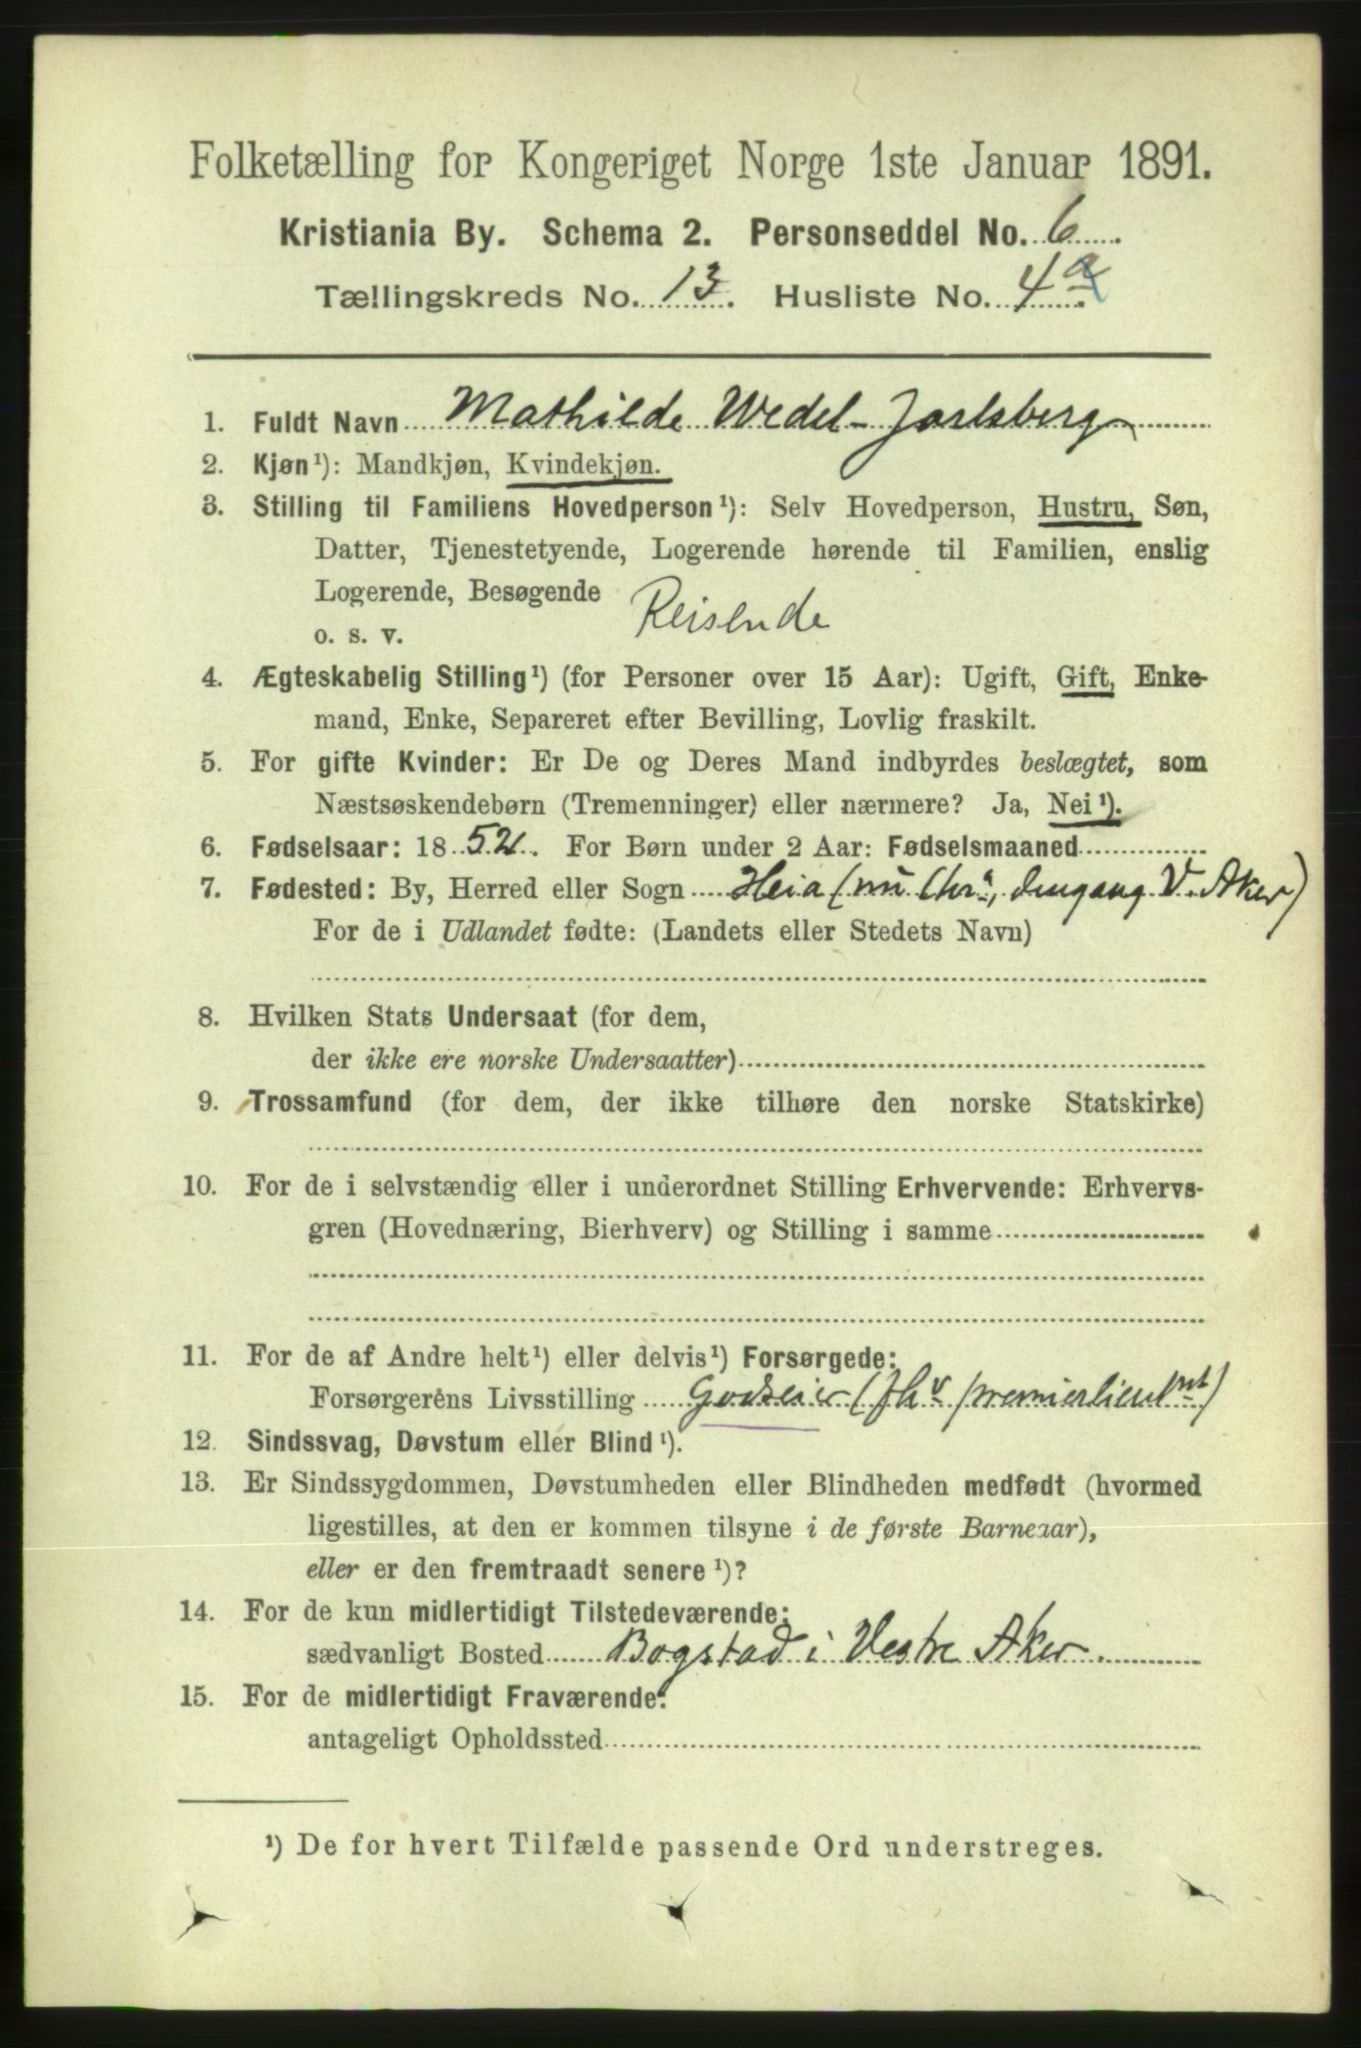 Folketælling for Kongeriget Norge 1ste Januar 1891.
Kristiania By. Schema 2. Personseddel No. 6
Tællingskreds No. 13. Husliste No. 4a
1. Fuldt Navn Mathilde Wedel-Jarlsberg
2. Kjøn¹): Mandkjøn, Kvindekjøn.
3. Stilling til Familiens Hovedperson¹): Selv Hovedperson, Hustru, Søn,
Datter, Tjenestetyende, Logerende hørende til Familien, enslig
Logerende, Besøgende Reisende
o. s. v.
4. Ægteskabelig Stilling¹) (for Personer over 15 Aar): Ugift, Gift, Enke-
mand, Enke, Separeret efter Bevilling, Lovlig fraskilt.
5. For gifte Kvinder: Er De og Deres Mand indbyrdes beslægtet, som
Næstsøskendebørn (Tremenninger) eller nærmere? Ja, Nei¹).
6. Fødselsaar: 1852. For Børn under 2 Aar: Fødselsmaaned
7. Fødested: By, Herred eller Sogn Heia (nu Chr.a, dengang V. Aker)
For de i Udlandet fødte: (Landets eller Stedets Navn)
8. Hvilken Stats Undersaat (for dem,
der ikke ere norske Undersaatter)
9. Trossamfund (for dem, der ikke tilhøre den norske Statskirke)
10. For de i selvstændig eller i underordnet Stilling Erhvervende: Erhvervs-
gren (Hovednæring, Bierhverv) og Stilling i samme
11. For de af Andre helt¹) eller delvis¹) Forsørgede:
Forsørgerens Livsstilling Godseier (fhv premierlieutnt)
12. Sindssvag, Døvstum eller Blind¹).
13. Er Sindssygdommen, Døvstumheden eller Blindheden medfødt (hvormed
ligestilles, at den er kommen tilsyne i de første Barneaar),
eller er den fremtraadt senere¹)?
14. For de kun midlertidigt Tilstedeværende:
sædvanligt Bosted Bogstad i Vestre Aker
15. For de midlertidigt Fraværende:
antageligt Opholdssted
¹) De for hvert Tilfælde passende Ord understreges.